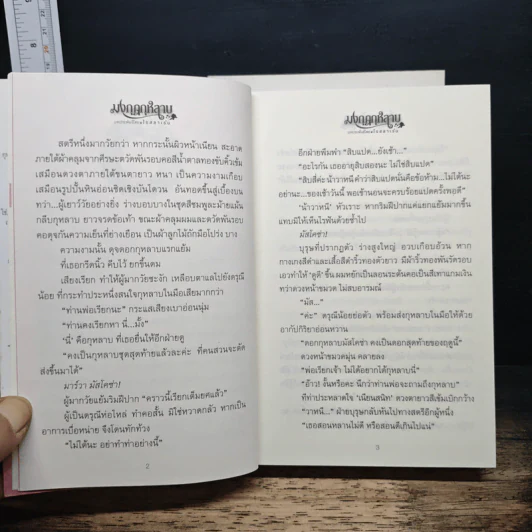 มงกุฎกุหลาบ
สตรีหนึ่งมากวัยกว่า หากกระนั้นผิวหน้าเนียน สะอาด
ภายใต้ผ้าคลุมจากศีรษะตวัดพันรอบคอสีน้ำตาลทองขับคิ้วเข้ม
เสมือนดวงตาภายใต้ขนตายาว หนา เป็นความงามเกือบ
เสมือนรูปปั้นหินอ่อนเชิดเชิงบันไดวน อันทอดขึ้นสู่เบื้องบน
ทว่า...ผู้เยาว์วัยอย่างยิ่ง ร่างบอบบางในชุดสีชมพูละม้ายแม้น
กลีบกุหลาบ ยาวจรดข้อเท้า ขณะผ้าคลุมผมและตวัดพันรอบ
คอดุจกันความเย็นที่ย่างเยือน เป็นผ้าลูกไม้ถักมือโปร่ง บาง
ความงามนั้น ดุจดอกกุหลาบแรกแย้ม
ที่เธอกรีดนิ้ว คีบไว้ ยกขึ้นดม
เสียงเรียก ทำให้ผู้มากวัยชะงัก เหลือบตาแลไปยังดรุณี
น้อย ที่กระทำประหนึ่งสนใจกุหลาบในมือเสียมากกว่า
“ท่านพ่อเรียกนะ” กระแสเสียงเบาอ่อนนุ่ม
“ท่านคงเรียกหา นี่...มั้ง”
‘นี่’ คือกุหลาบ ที่เธอยื่นให้อีกฝ่ายดู
“คงเป็นกุหลาบชุดสุดท้ายแล้วละค่ะ ที่คนสวนจะตัด
ส่งขึ้นมาได้”
มาร์วา มัสโคซ่า!
ผู้มากวัยแย้มริมฝีปาก “คราวนี้เรียกเต็มยศแล้ว”
ผู้เป็นดรุณีห่อไหล่ ทำคอสั้น มิใช่หวาดกลัว หากเป็น
อาการเบื่อหน่าย จึงโดนทักท้วง
“ไม่ได้นะ อย่าทำท่าอย่างนี้”
2
มงกุฎกุหลาบ
อีกฝ่ายพึมพำ “สิบแปด...ยังเช้า...”
“อะไรกัน เธออายุสิบสองนะ ไม่ใช่สิบแปด”
“สิบสี่ค่ะน้าวาหนี คำว่าสิบแปดนั่นคือข้อห้าม...ไม่ได้นะ
อย่านะ...ของเช้าวันนี้ พอเข้านอนจะครบร้อยแปดครั้งพอดี”
“น้าวาหนี” หัวเราะ หากริมฝีปากแค่แยกแย้มมากขึ้น
แทบมิให้เห็นไรฟันด้วยซ้ำไป
มัสโคซ่า!
บุรุษที่ปรากฏตัว ร่างสูงใหญ่ อวบเกือบอ้วน หาก
กางเกงสีดำและเสื้อสีดำริ้วทองตัวยาว มีผ้าริ้วทองพันรัดรอบ
เอวทำให้ ‘ดูดี’ ขึ้น ผมหยักเป็นลอนระต้นคอเป็นสีเทาแกมเงิน
ทว่าดวงหน้าขมวด ไม่สบอารมณ์
“มัส...”
“ค่ะ” ดรุณีน้อยย่อตัว พร้อมส่งกุหลาบในมือให้ด้วย
อากัปกิริยาอ่อนหวาน
“ดอกกุหลาบมัสโคซ่า คงเป็นดอกสุดท้ายของฤดูนี้”
ดวงหน้าขมวดมุ่น คลายลง
“พ่อเรียกเจ้า ไม่ได้อยากได้กุหลาบนี่”
“อ๊าว! งั้นหรือคะ นึกว่าท่านพ่อจะถามถึงกุหลาบ”
ทีท่าประหลาดใจ ‘เนียนสนิท’ ดวงตายาวสีเข้มเบิกกว้าง
“วาหนี...” ฝ่ายบุรุษกลับหันไปทางสตรีอีกผู้หนึ่ง
“เธอสอนหลานไม่ดี หรือสอนดีเกินไปแน่”
3